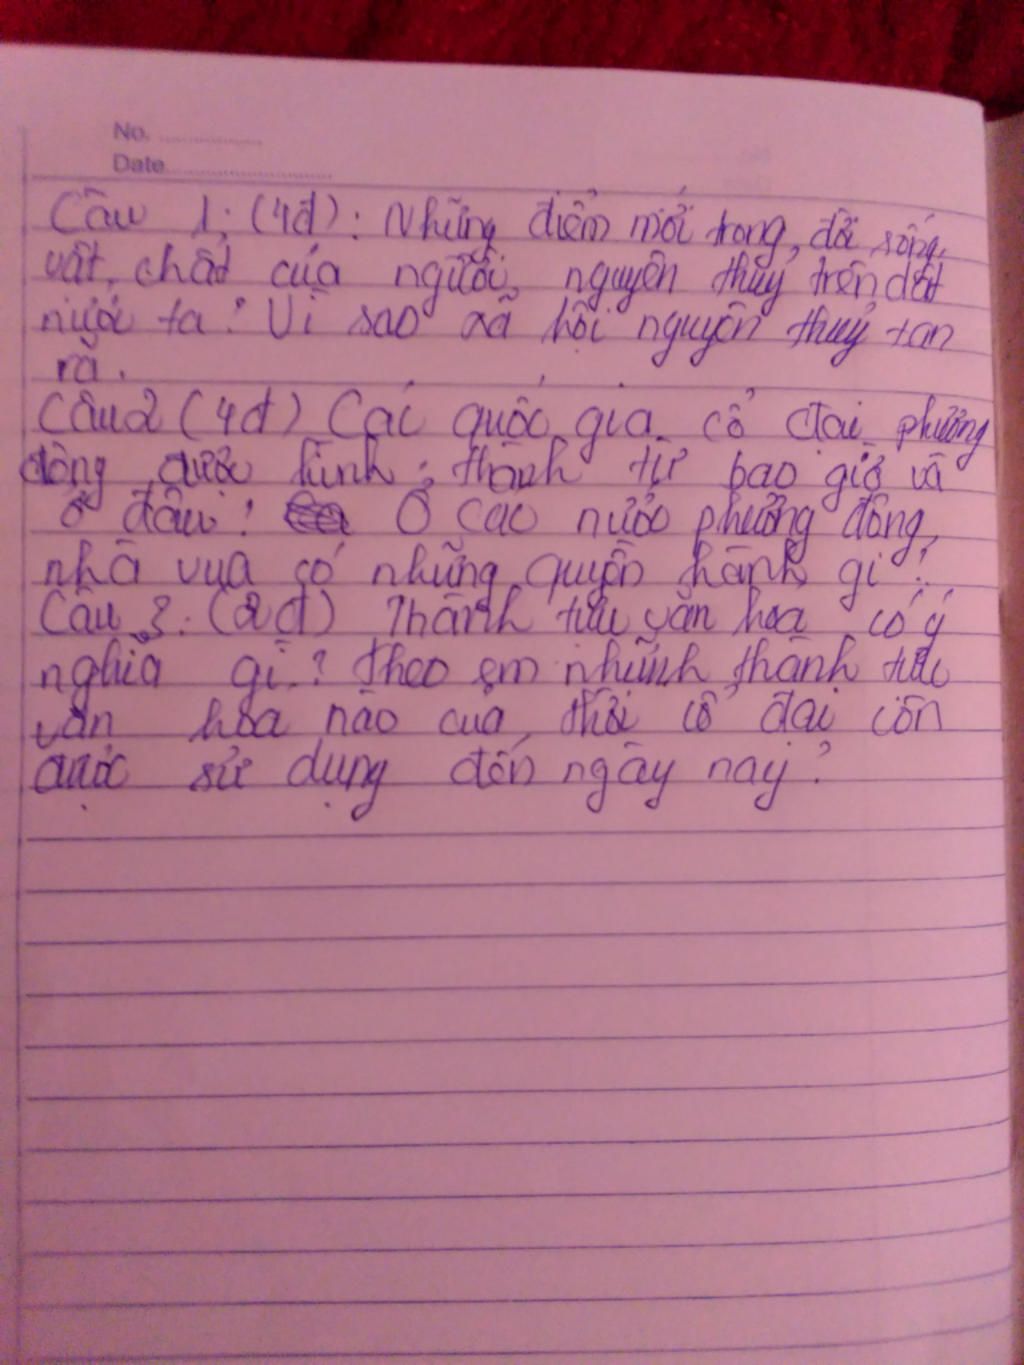 No. ..............
Date............................
Câu 1: (4đ): Những điểm mới trong đời sống
vật chất của người nguyên thuỷ trên đất
nước ta? Vì sao xã hội nguyên thuỷ tan
rã.
Câu 2 (4đ) Các quốc gia cổ đại phương
đông được hình thành từ bao giờ và
ở đâu? Ở các nước phương đông,
nhà vua có những quyền hành gì?
Câu 3: (2đ) Thành tựu văn hoá có ý
nghĩa gì? Theo em nhữnh thành tựu
văn hoá nào của thời cổ đại còn
được sử dụng đến ngày nay?